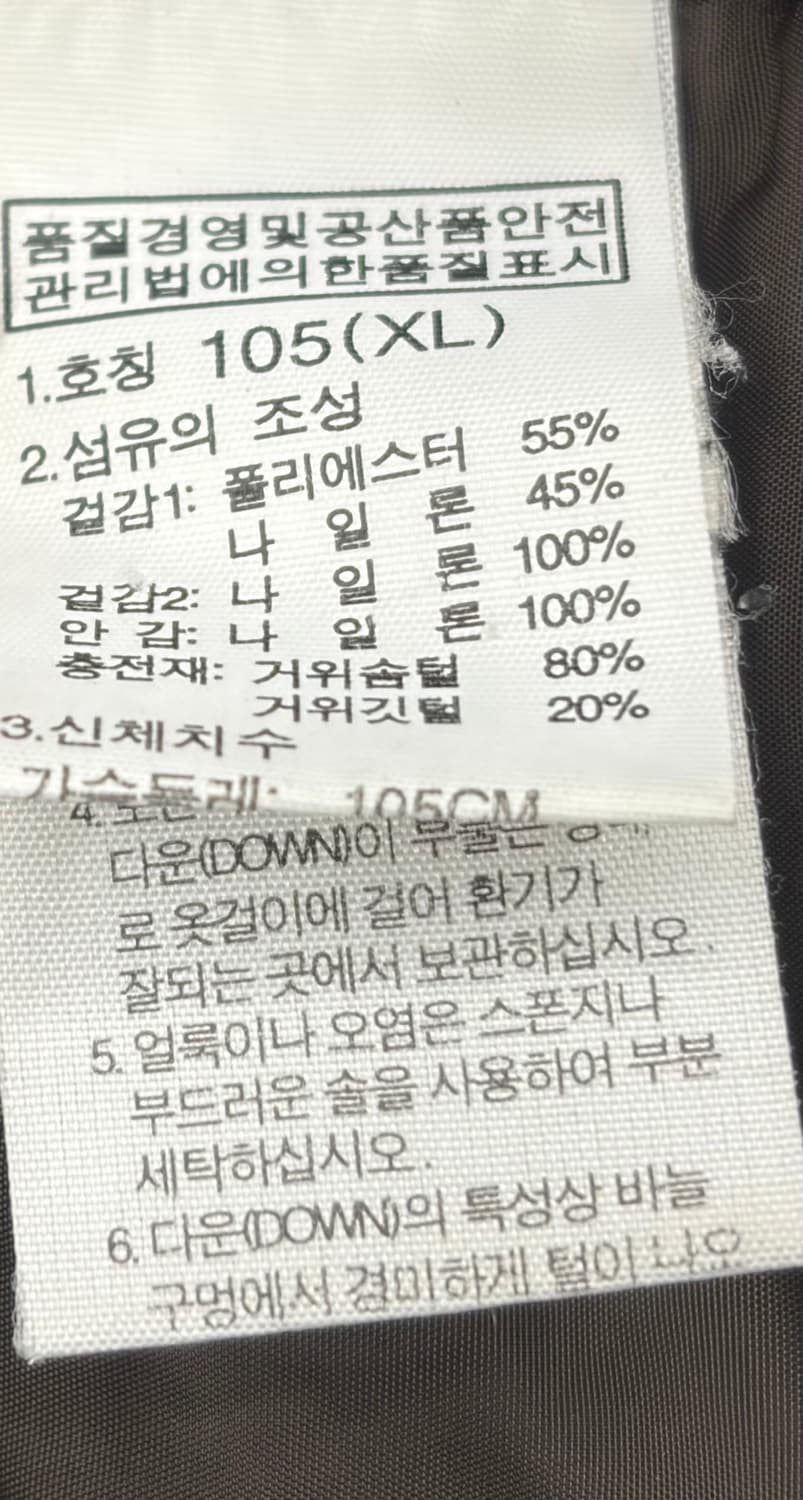 품질경영및공산품안전
관리법에의한품질표시
1.호칭 105(XL)
2.섬유의 조성
겉감1: 폴리에스터 55%
나 일 론 45%
겉감2: 나 일 론 100%
안 감: 나 일 론 100%
충전재: 거위솜털 80%
거위깃털 20%
3.신체치수
가슴둘레: 105CM
4.
다운(DOWN)이 부풀은
로 옷걸이에 걸어 환기가
잘되는 곳에서 보관하십시오.
5. 얼룩이나 오염은 스폰지나
부드러운 솔을 사용하여 부분
세탁하십시오.
6. 다운(DOWN)의 특성상 바늘
구멍에서 경미하게 털이 나오